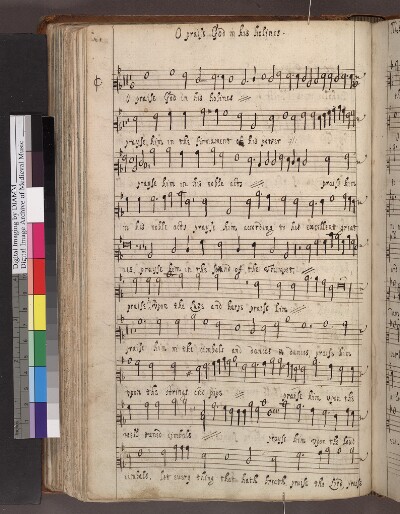 O praise God in his holines.
O praise God in his holines
prayse him in the firmament of his power
prayse him in his noble acts praise him
in his noble acts prayse him according to his excellent great
nes, prayse him in the sound of the Trumpet
praise upon the Lute and harpe praise him
praise him in the cimbals and daunces daunces, praise him
upon the strings and pipe praise him upon the
well tuned cymbals praise him upon the loud
cimbals, let every thing that hath breath praise the Lord, praise
Digital Imaging by DIAMM
Digital Image Archive of Medieval Music